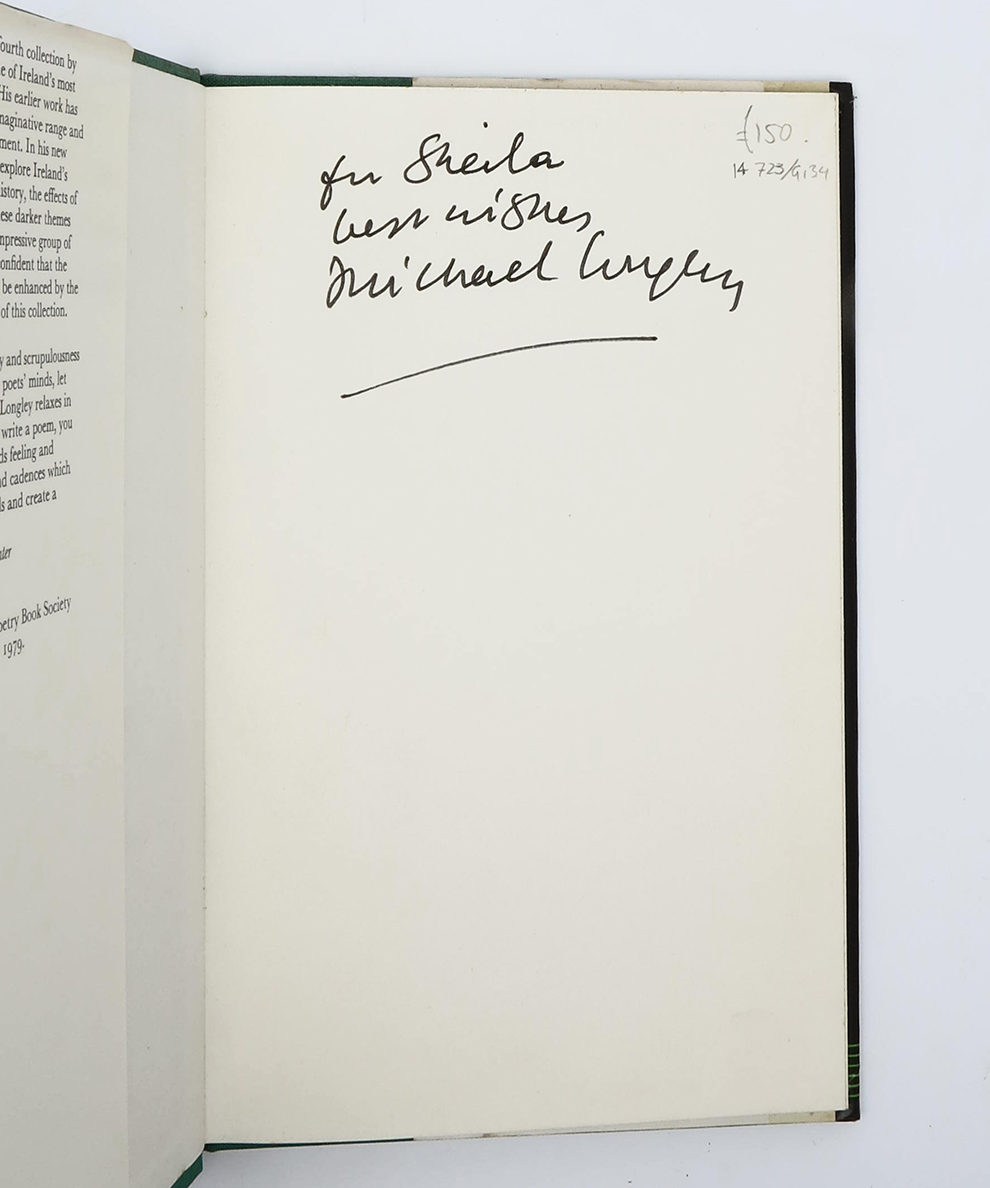 fourth collection by
e of Ireland's most
His earlier work has
maginative range and
ment. In his new
explore Ireland's
istory, the effects of
ese darker themes
mpressive group of
onfident that the
be enhanced by the
of this collection.
y and scrupulousness
poets' minds, let
Longley relaxes in
write a poem, you
ds feeling and
nd cadences which
ls and create a
oetry Book Society
1979.
for Sheila
best wishes
Michael Longley
£150.
14 723/G134